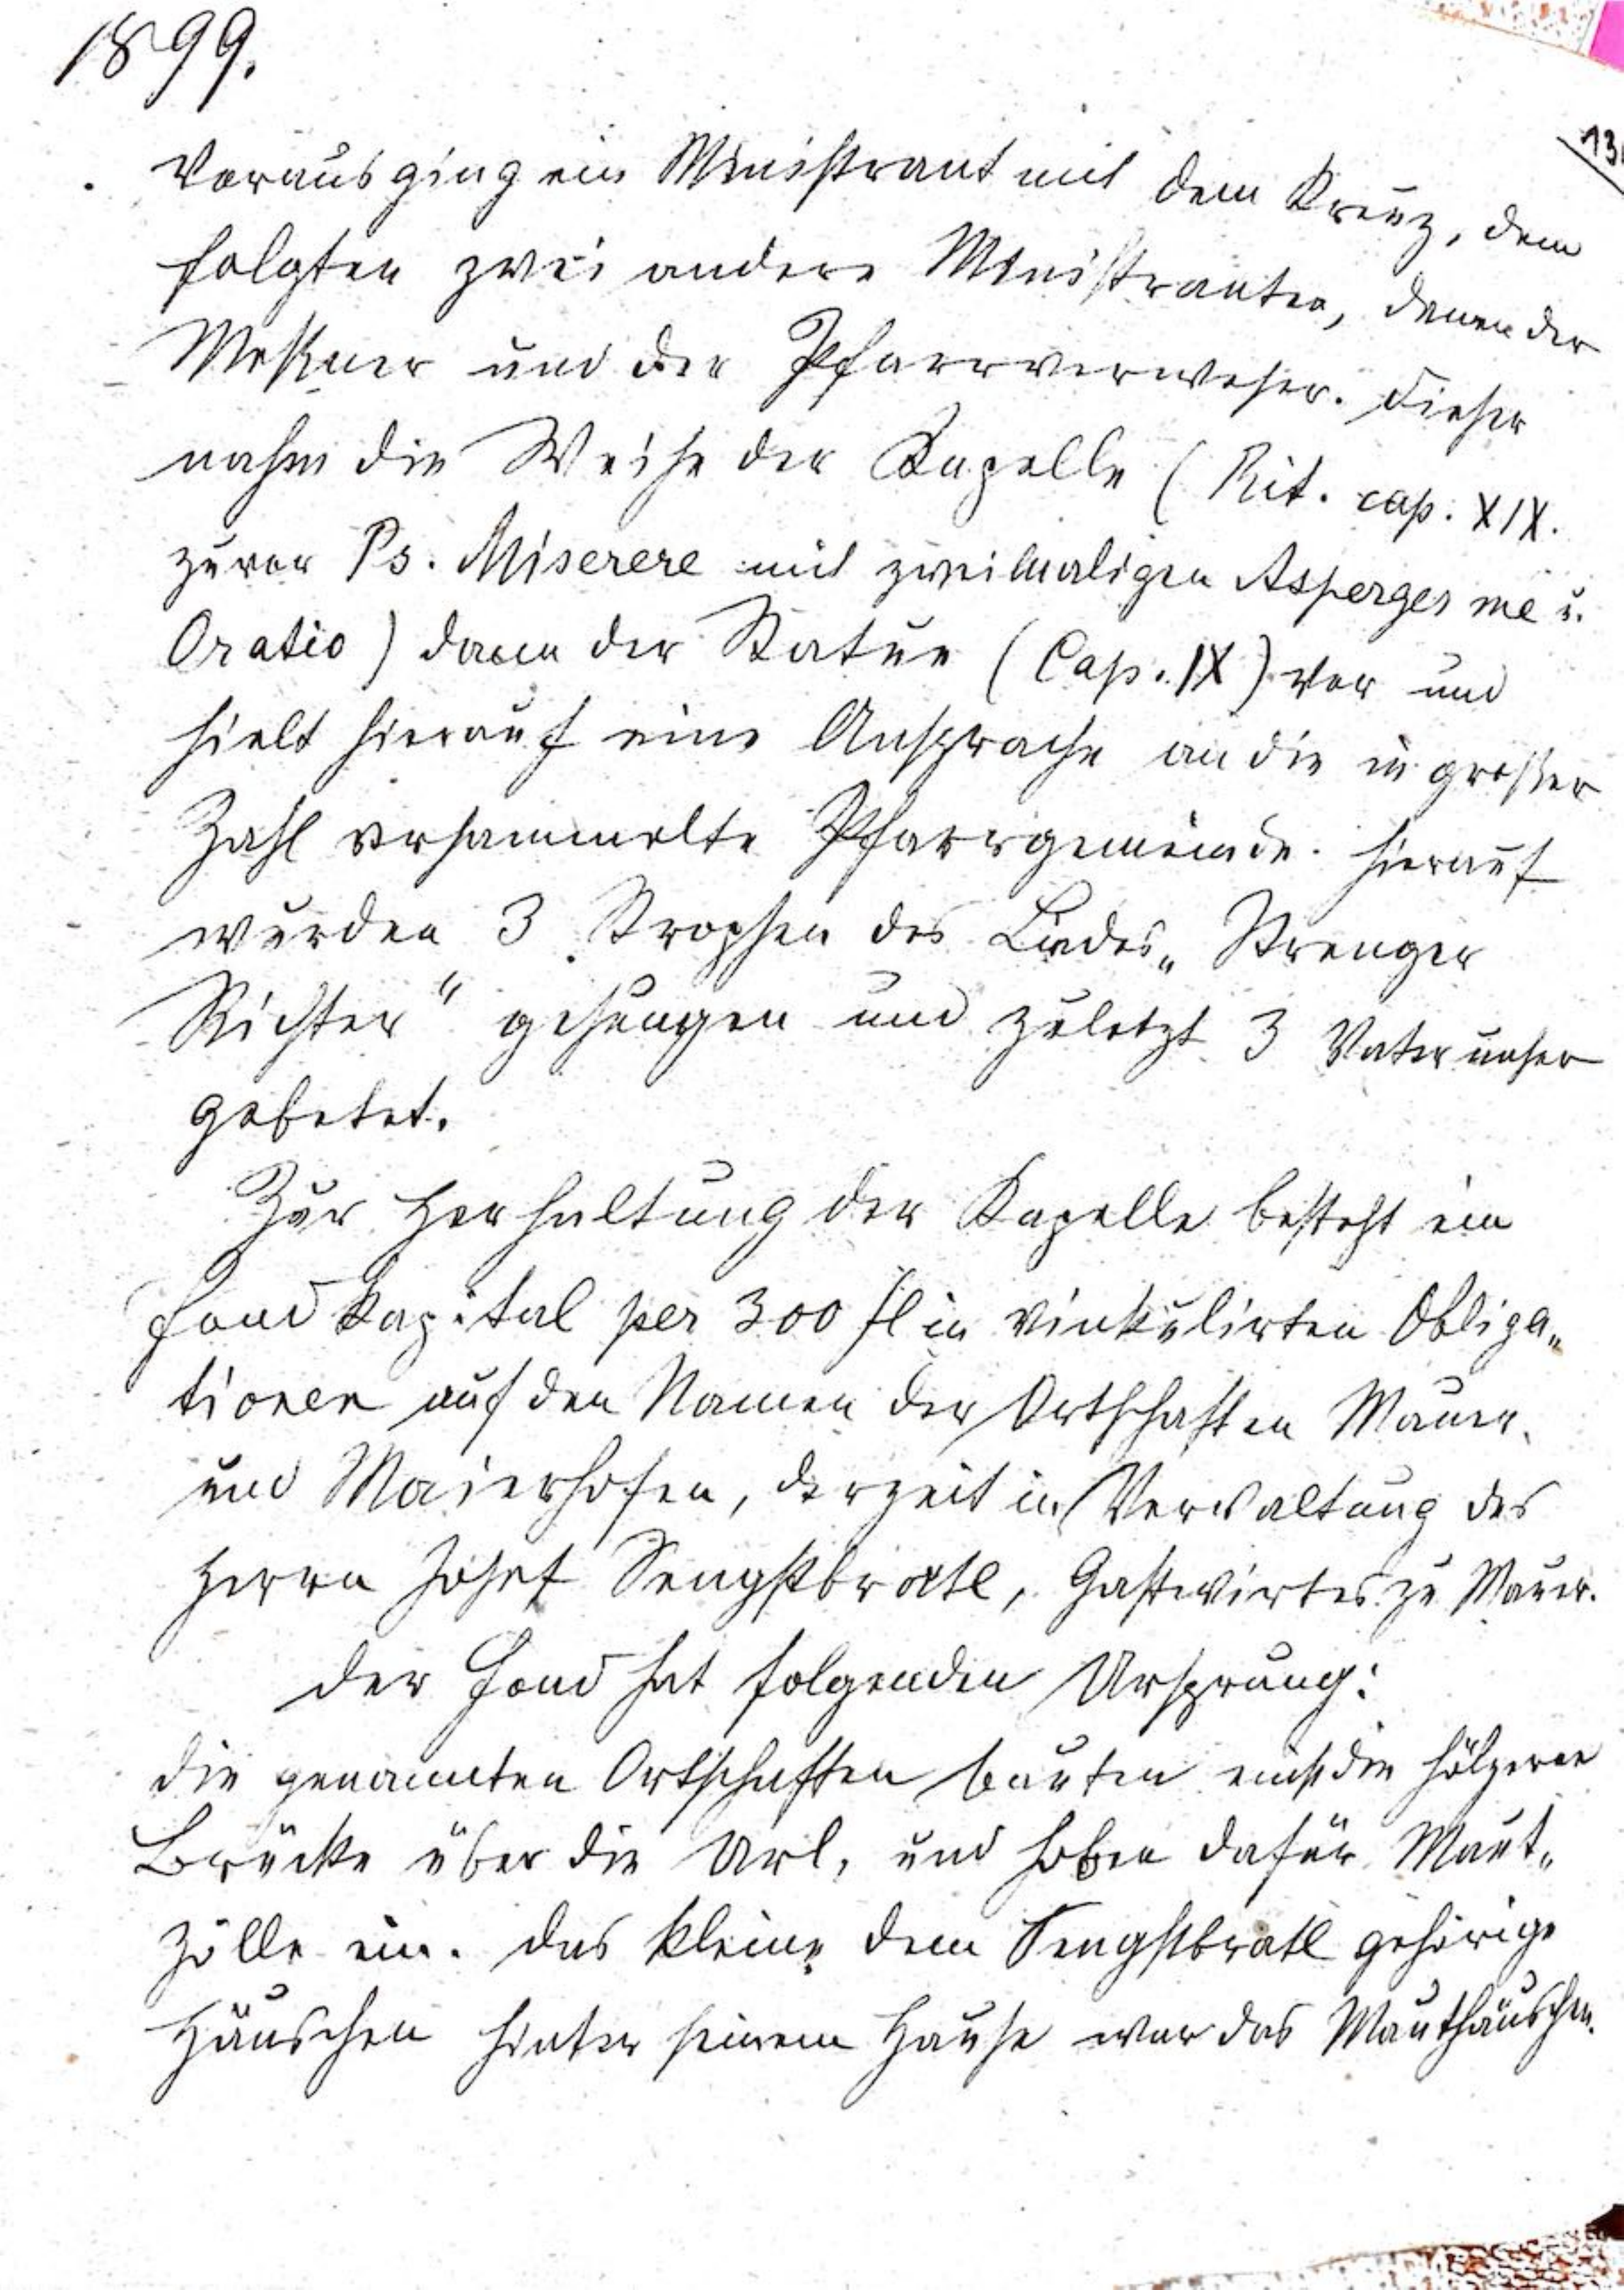 1899.
13
Voraus ging ein Ministrant mit dem Kreuz, dem
folgten zwei andere Ministranten, denen der
Meßner und der Pfarrverweser. Dieser
nahm die Weihe der Kapelle (Rit. cap. XIX.
zuvor Ps. Miserere mit zweimaligen Asperges me u.
Oratio) dann der Statue (Cap. IX) vor und
hielt hierauf eine Ansprache an die in großer
Zahl versammelte Pfarrgemeinde. Hierauf
wurden 3 Strophen des Liedes „Strenger
Richter“ gesungen und zuletzt 3 Vater unser
gebetet.
Zur Herhaltung der Kapelle besteht ein
Fond Kapital per 300 fl in vinkulirten Obliga„
tionen auf den Namen der Ortschaften Mauer
und Maierhofen, derzeit in Verwaltung des
Herrn Josef Sengstbratl, Gastwirtes zu Mauer.
Der Fond hat folgenden Ursprung:
Die genannten Ortschaften bauten einst die hölzerne
Brücke über die Url, und hoben dafür Maut„
zölle ein. Das kleine dem Sengstbratl gehörige
Häuschen hinter seinem Hause war das Mauthäuschen.